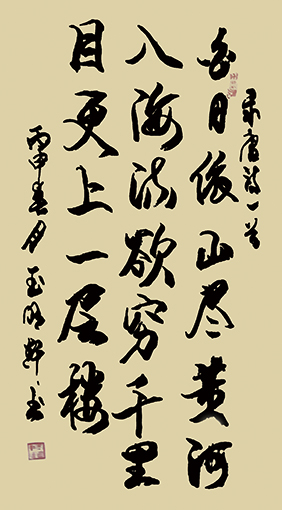 录唐诗一首
白日依山尽黄河
入海流欲穷千里
目更上一层楼
丙申春月玉明